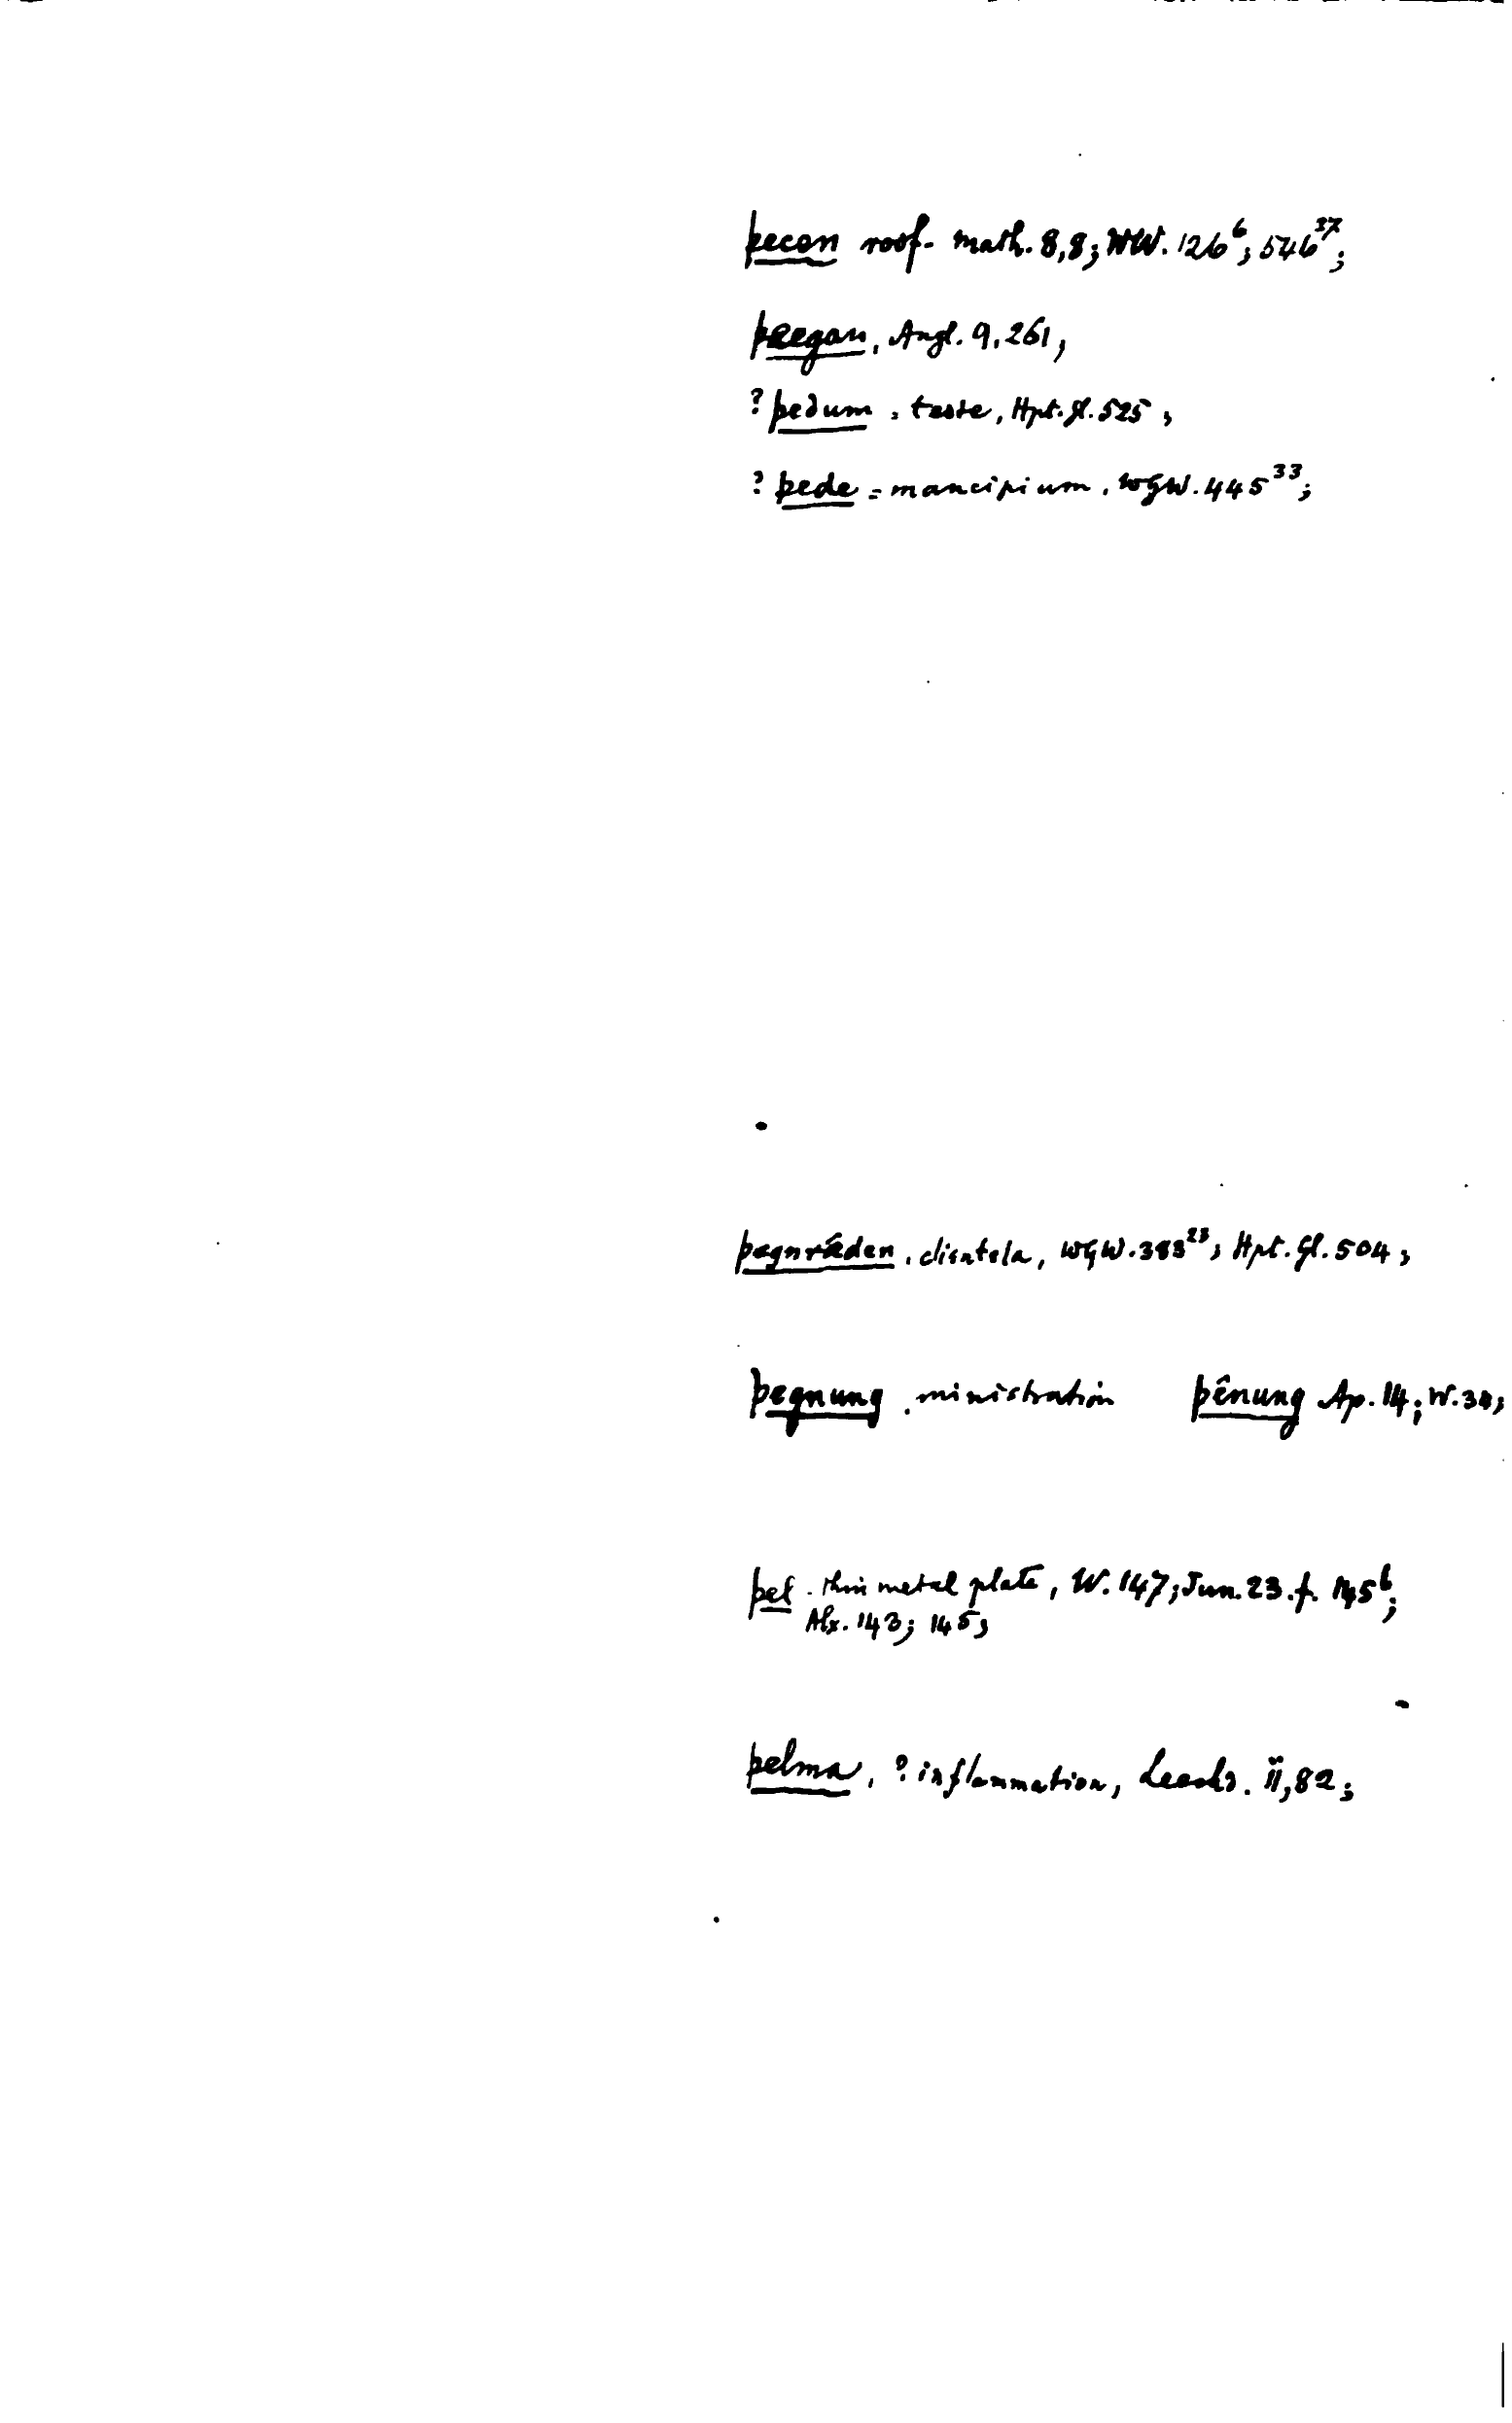 þecen roof. math. 8,8; WW. 126⁶; 546³⁷;
þecgan, Angl. 9, 261,
? þedum = teste, Hpt. gl. 525,
? þede = mancipium, WGW. 445³³;
þegnrǽden, clientela, WGW. 383²³, Hpt. Gl. 504,
þegnung, ministration þênung Ap. 14; W. 38;
þel. thin metal plate, W. 147; Jun. 23. f. 145ᵇ;
Alx. 143; 145;
þelma, ? inflammation, Leechd. ii, 82;